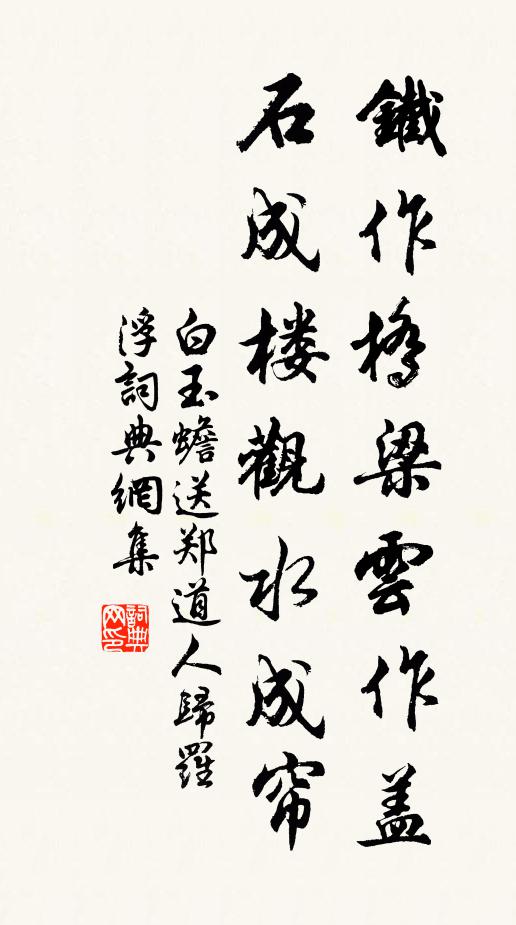 鐵作橋梁雲作盖
石成楼觀水成帘
白玉蟾送郑道人歸羅
浮詞典網集
詞典
网印